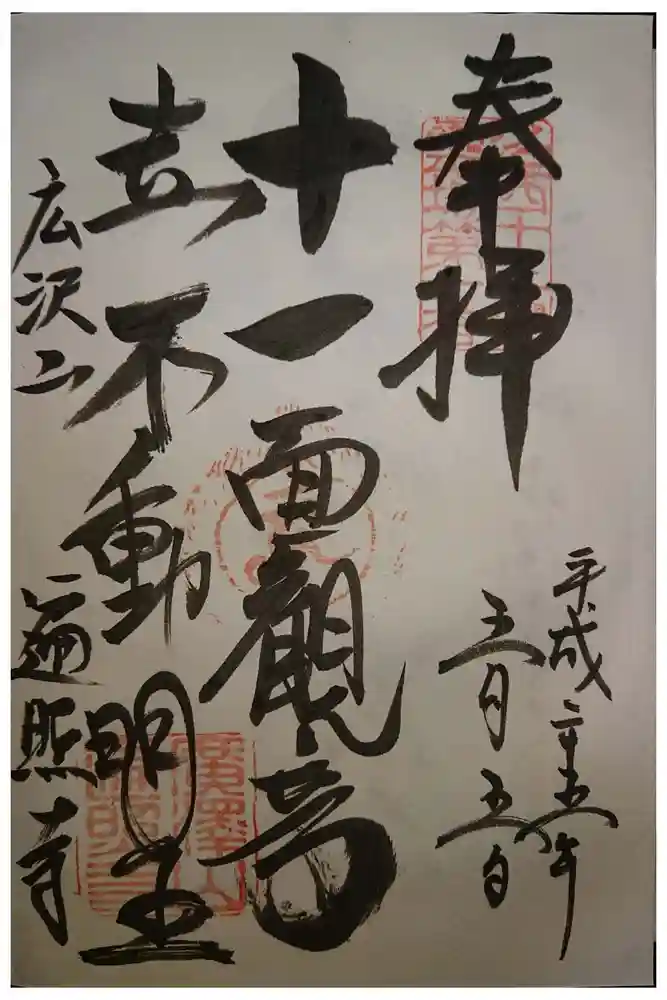 奉拝
平成二十五年
五月五日
十一面觀音
赤不動明王
広沢山
遍照寺